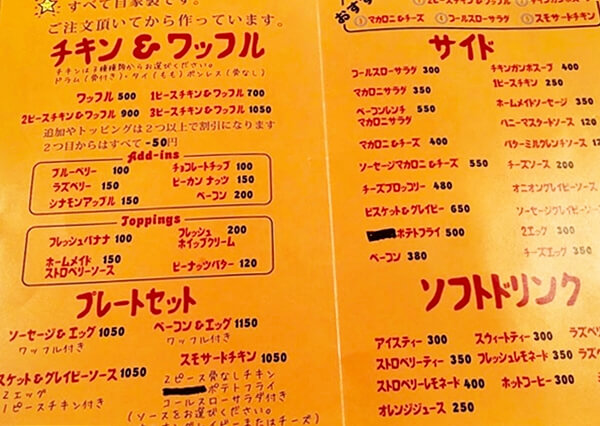 すべて自家製です。
ご注文頂いてから作っています。
チキン & ワッフル
チキンは3種類からお選びください。
ドラム(骨付き)・タイ(もも)ボンレス(骨なし)
ワッフル 500 1ピースチキン&ワッフル 700
2ピースチキン&ワッフル 900 3ピースチキン&ワッフル 1050
追加やトッピングは2つ以上で割引になります
2つ目からはすべて -50円
Add-ins
ブルーベリー 100 チョコレートチップ 100
ラズベリー 150 ピーカン ナッツ 150
シナモンアップル 150 ベーコン 200
Toppings
フレッシュバナナ 100 フレッシュホイップクリーム 200
ホームメイドストロベリーソース 150 ピーナッツバター 120
プレートセット
ソーセージ&エッグ 1050
ワッフル付き
ベーコン&エッグ 1150
ワッフル付き
スケット&グレイビーソース 1050
2エッグ
1ピースチキン付き
スモサードチキン 1050
2ピース骨なしチキン
ポテトフライ
コールスローサラダ付き
(ソースをお選びください。
またはチーズ)
おす
①マカロニ&チーズ ④コールスローサラダ ⑤スモサードチキン
サイド
コールスローサラダ 300
マカロニサラダ 350
ベーコンレンチマカロニサラダ 550
マカロニ&チーズ 400
ソーセージマカロニ&チーズ 550
チーズブロッコリー 480
ビスケット&グレイビー 650
ポテトフライ 500
ベーコン 380
チキンガンボスープ 400
1ピースチキン 250
ホームメイドソーセージ 350
ハニーマスタードソース 100
バターミルクレンチソース 100
チーズソース 200
オニオングレイビーソース
ソーセージグレイビーソース
2エッグ 300
チーズエッグ 350
ソフトドリンク
アイスティー 300 スウィートティー 300 ラズベ
ストロベリーティー 350 フレッシュレモネード 350 ラズ
ストロベリーレモネード 400 ホットコーヒー 300
オレンジジュース 250